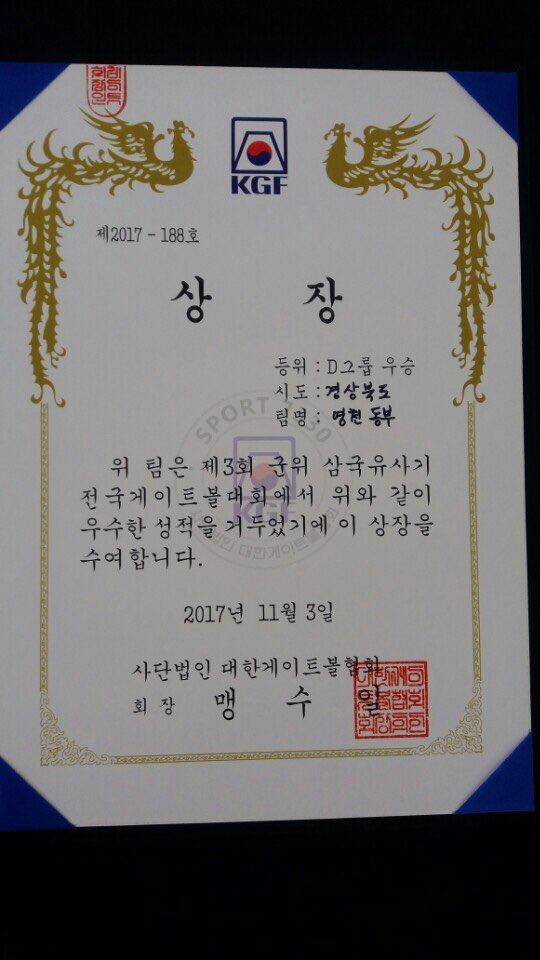 KGF
제2017 - 188호
상 장
등위 : D그룹 우승
시도 : 경상북도
팀명 : 영현 동부
SPORT
위 팀은 제3회 군위 삼국유사기
전국게이트볼대회에서 위와 같이
우수한 성적을 거두었기에 이 상장을
수여합니다.
2017년 11월 3일
사단법인 대한게이트볼협회
회 장 맹 수 일